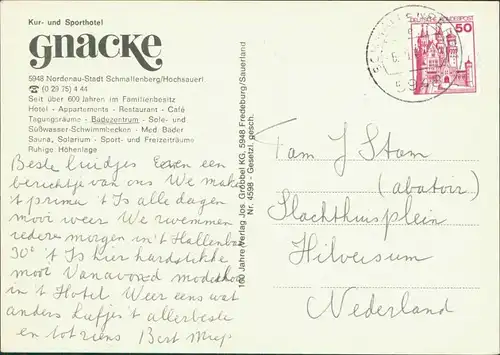 Kur- und Sporthotel
Gnacke
5948 Nordenau-Stadt Schmallenberg/Hochsauerl
☎ (0 29 75) 4 44
Seit über 600 Jahren im Familienbesitz
Hotel - Appartements - Restaurant - Café
Tagungsräume - Badezentrum - Sole- und
Süßwasser-Schwimmbecken - Med. Bäder
Sauna, Solarium - Sport- und Freizeiträume
Ruhige Höhenlage
Beste luidjes Even een
berichtje van ons We maken
't prima 't Is alle dagen
mooi weer We zwemmen
iedere morgen in 't Hallenbad
30° 't Is hier hardstikke
mooi Vanavond modeshow
in 't Hotel. Weer eens wat
anders Liefjes 't allerbeste
en tot ziens Bert Miep
100 Jahre Verlag Jos. Grobbel KG, 5948 Fredeburg/Sauerland
Nr. 4598 - Gesetzl. gesch.
DEUTSCHE BUNDESPOST
50
Fam J Stam
(abatoir)
Slachthuisplein
Hilversum
Nederland